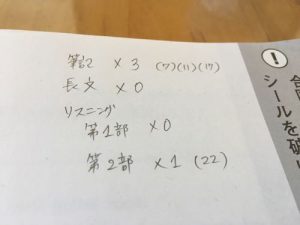 筆記 × 3 (7)(11)(17)
長文 × 0
リスニング
第1部 × 0
第2部 × 1 (22)
!
シールを破